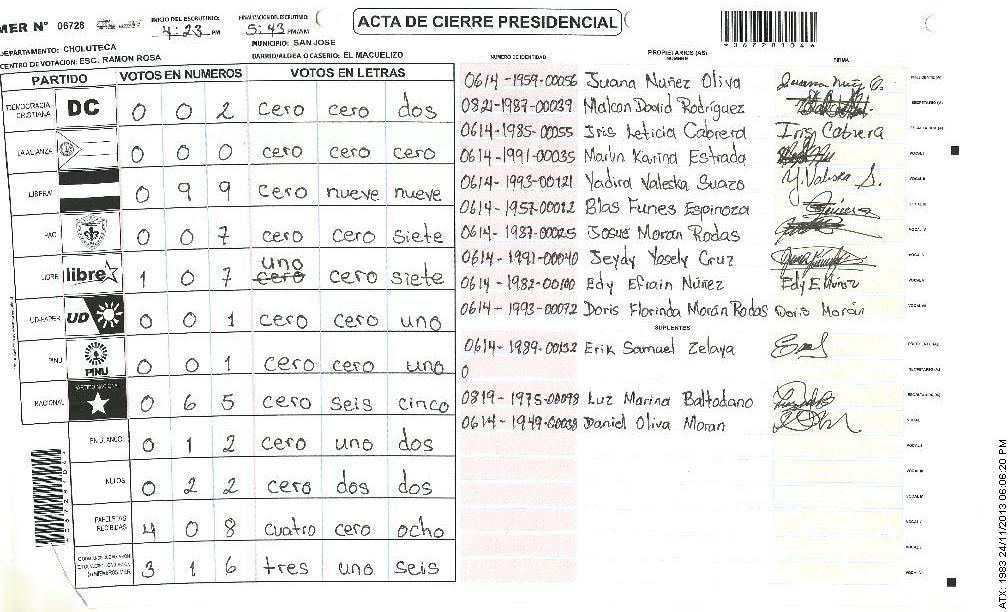 MER N° 06728 INICIO DEL ESCRUTINIO: 4:23 PM FINALIZACION DEL ESCRUTINIO: 5:43 PM/AM ACTA DE CIERRE PRESIDENCIAL
DEPARTAMENTO: CHOLUTECA MUNICIPIO: SAN JOSE
CENTRO DE VOTACION: ESC. RAMON ROSA BARRIO/ALDEA O CASERIO: EL MACUELIZO
PARTIDO VOTOS EN NUMEROS VOTOS EN LETRAS
DEMOCRACIA CRISTIANA DC 0 0 2 cero cero dos
LA ALIANZA 0 0 0 cero cero cero
LIBERAL 0 9 9 cero nueve nueve
PAC 0 0 7 cero cero siete
LIBRE libre 1 0 7 uno cero cero siete
UD-FAPER UD 0 0 1 cero cero uno
PINU PINU 0 0 1 cero cero uno
NACIONAL PARTIDO NACIONAL 0 6 5 cero seis cinco
EN BLANCO 0 1 2 cero uno dos
NULOS 0 2 2 cero dos dos
PAPELETAS RECIBIDAS 4 0 8 cuatro cero ocho
3 1 6 tres uno seis
PROPIETARIOS (AS)
NUMERO DE IDENTIDAD NOMBRE FIRMA
0614-1959-00056 Juana Nuñez Oliva PRESIDENTE(A)
0821-1987-00039 Malcon David Rodríguez SECRETARIO (A)
0614-1985-00055 Iris Leticia Cabrera Iris Cabrera ESCRUTADOR (A)
0614-1991-00035 Marlin Karina Estrada VOCAL I
0614-1993-00121 Yadira Valeska Suazo Y. Valeska S. VOCAL II
0614-1957-00012 Blas Funes Espinoza VOCAL III
0614-1987-00025 Josue Moran Rodas VOCAL IV
0614-1991-00040 Jeydy Yosely Cruz VOCAL V
0614-1982-00100 Edy Efrain Núñez VOCAL VI
0614-1993-00072 Doris Florinda Morán Rodas Doris Morán VOCAL VII
SUPLENTES
0614-1989-00132 Erik Samuel Zelaya PRESIDENTE(A)
0 SECRETARIO (A)
0819-1975-00098 Luz Marina Baltodano ESCRUTADOR (A)
0614-1949-00038 Daniel Oliva Moran VOCAL I
ATX: 1983 24/11/2013 06:06:20 PM